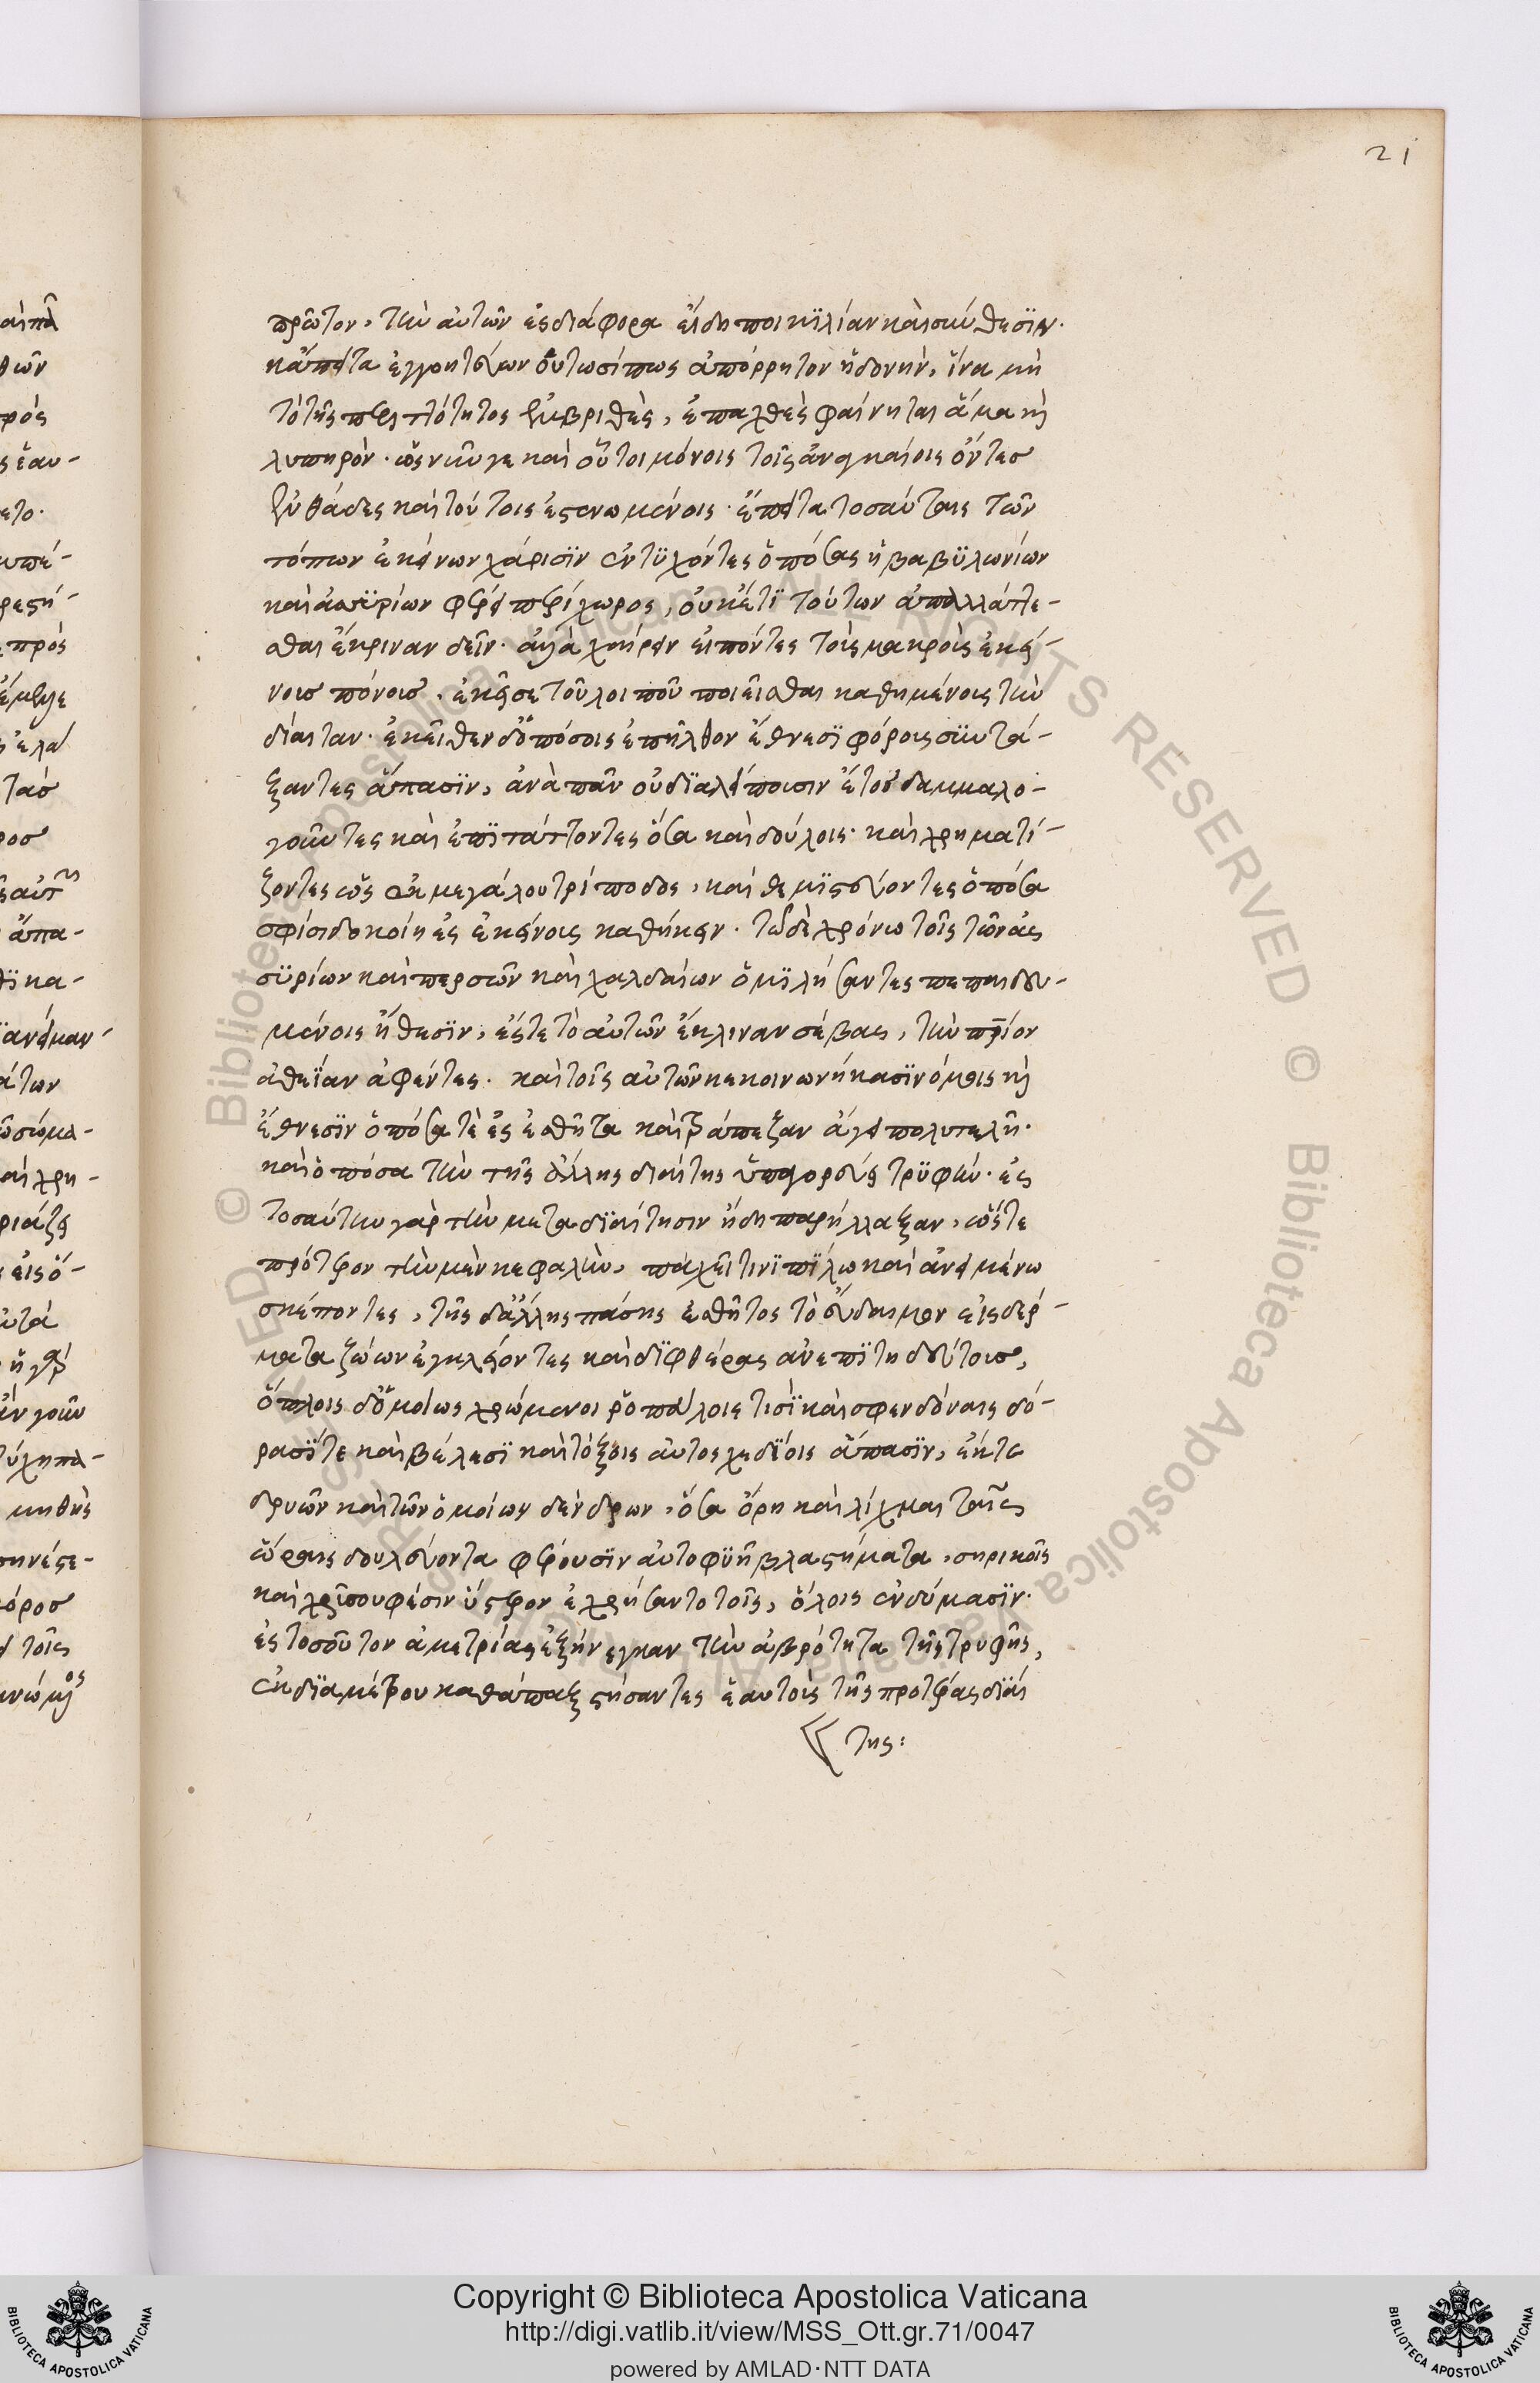 21
πρῶτον, τὴν αὐτῶν ἐς διάφορα εἴδη ποικϊλίαν καὶ σύνθεσϊν·
κἄπειτα ἐγγοητεύων οὑτωσί πως ἀπόρρητον ἡδονὴν, ἵνα μὴ
τὸ τῆς περιττότητος ἐμβριθὲς, ἐπαχθὲς φαίνηται ἅμα καὶ
λυπηρόν· ὡς νῦν γε καὶ οὗτοι μόνοις τοῖς ἀναγκαίοις ὄντες
ἐθάδες καὶ τούτοις ἐστενωμένοις· ἔπειτα τοσαύταις τῶν
τόπων ἐκείνων χάρισϊν ἐντϋχόντες ὁπόσας ἡ βαβϋλωνίων
καὶ ἀσσϋρίων φέρει περίχωρος, οὐκέτϊ τούτων ἀπαλλάττε-
σθαι ἔκριναν δεῖν· ἀλλὰ χαίρειν εἰπόντες τοῖς μακροῖς ἐκεί-
νοις πόνοις, ἐκεῖσε τοῦ λοιποῦ ποιεῖσθαι καθημένοις τὴν
δίαιταν· ἐκεῖθεν δ' ὁπόσοις ἐπῆλθον ἔθνεσϊ φόροις σϋντά-
ξαντες ἅπασϊν, ἀνὰ πᾶν οὐ δϊαλείπουσιν ἔτος δασμολο-
γοῦντες καὶ ἐπϊτάττοντες ὅσα καὶ δούλοις· καὶ χρηματί-
ζοντες ὡς ἐκ μεγάλου τρίποδος, καὶ θεμϊστεύοντες ὁπόσα
σφίσι δοκοίη ἐς ἐκείνους καθήκειν· τῶ δὲ χρόνω τοῖς τῶν ἀσ
σϋρίων καὶ περσῶν καὶ χαλδαίων ὁμϊλήσαντες πεπαιδευ-
μένοις ἤθεσϊν, ἔς τε τὸ αὐτῶν ἔκλιναν σέβας, τὴν πρίον
ἀθεΐαν ἀφέντες· καὶ τοῖς αὐτῶν κεκοινωνήκασϊν ὁμοῖς καὶ
ἔθνεσϊν ὁπόσα τὲ ἐς ἐσθῆτα καὶ τράπεζαν ἄγει πολυτελῆ·
καὶ ὁπόσα τὴν τῆς ἄλλης διαίτης ὑπαγορεύει τρϋφήν· ἐς
τοσαύτην γὰρ τὴν μεταδϊαίτησιν ἤδη παρήλλαξαν, ὥστε
πρότερον τὴν μὲν κεφαλὴν, παχεῖ τινϊ πϊλω καὶ ἀνειμένω
σκέποντες, τῆς δ' ἄλλης πάσης ἐσθῆτος τὸ εὔδαιμον εἰς δέρ-
ματα ζώων ἐγκλείοντες καὶ δϊφθέρας ἀνεπϊτηδεύτους,
ὅπλοις δ' ὁμοίως χρώμενοι ῥοπάλοις τισϊ καὶ σφενδόναις δό-
ρασϊ τε καὶ βέλεσϊ καὶ τόξοις αὐτοσχεδΐοις ἅπασϊν, ἔκ τε
δρυῶν καὶ τῶν ὁμοίων δένδρων, ὅσα ὄρη καὶ λίχμαι ταῖς
ὥραις δουλεύοντα φέρουσϊν αὐτοφϋῆ βλαστήματα, σηρικοῖς
καὶ χρϋσουφέσιν ὕστερον ἐχρήσαντο τοῖς, ὅλοις ἐνδύμασϊν·
ἐς τοσοῦτον ἀμετρίας ἐξήνεγκαν τὴν ἁβρότητα τῆς τρυφῆς,
ἐκ δϊαμέτρου καθάπαξ στήσαντες ἑαυτοὺς τῆς προτέρας δϊαί
της:
Copyright © Biblioteca Apostolica Vaticana
http://digi.vatlib.it/view/MSS_Ott.gr.71/0047
powered by AMLAD·NTT DATA